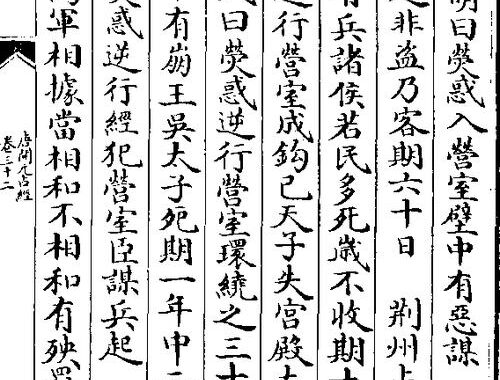 曰熒惑入營室壁中有惡謀
之非盗乃客期六十日　荆州占
有兵諸侯若民多死歲不收期
逆行營室成鈎已天子失宫殿
曰熒惑逆行營室環繞之三十
有崩王吳太子死期一年中
熒惑逆行經犯營室臣謀兵起
軍相據當相和不相和有殃
唐開元占經
卷三十二